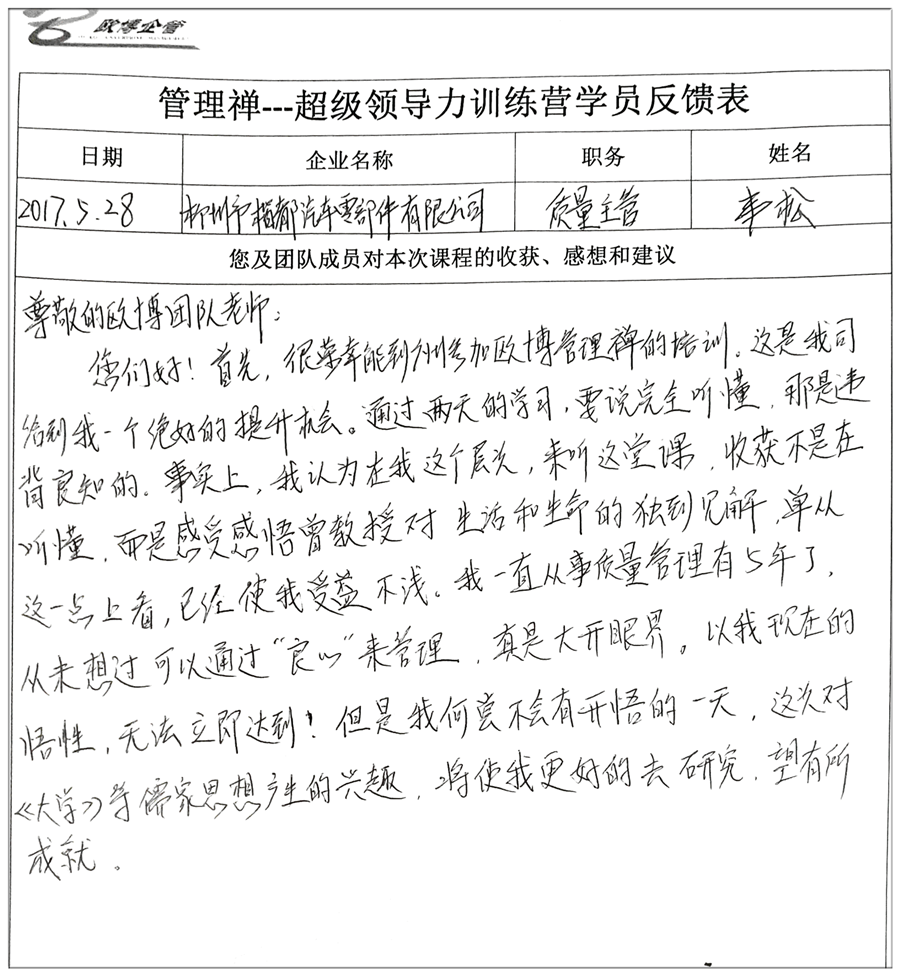 欧博企管
管理禅---超级领导力训练营学员反馈表
日期 企业名称 职务 姓名
2017.5.28 柳州市楷都汽车零部件有限公司 质量主管 韦松
您及团队成员对本次课程的收获、感想和建议
尊敬的欧博团队老师:
您们好!首先,很荣幸能到广州参加欧博管理禅的培训。这是我司
给到我一个绝好的提升机会。通过两天的学习,要说完全听懂,那是违
背良知的。事实上,我认为在我这个层次,来听这堂课,收获不是在
听懂,而是感受感悟曾教授对生活和生命的独到见解,单从
这一点上看,已经使我受益不浅。我一直从事质量管理有5年了,
从未想过可以通过“良心”来管理,真是大开眼界。以我现在的
悟性,无法立即达到!但是我何尝不会有开悟的一天,这次对
《大学》等儒家思想产生的兴趣,将使我更好的去研究,望有所
成就。